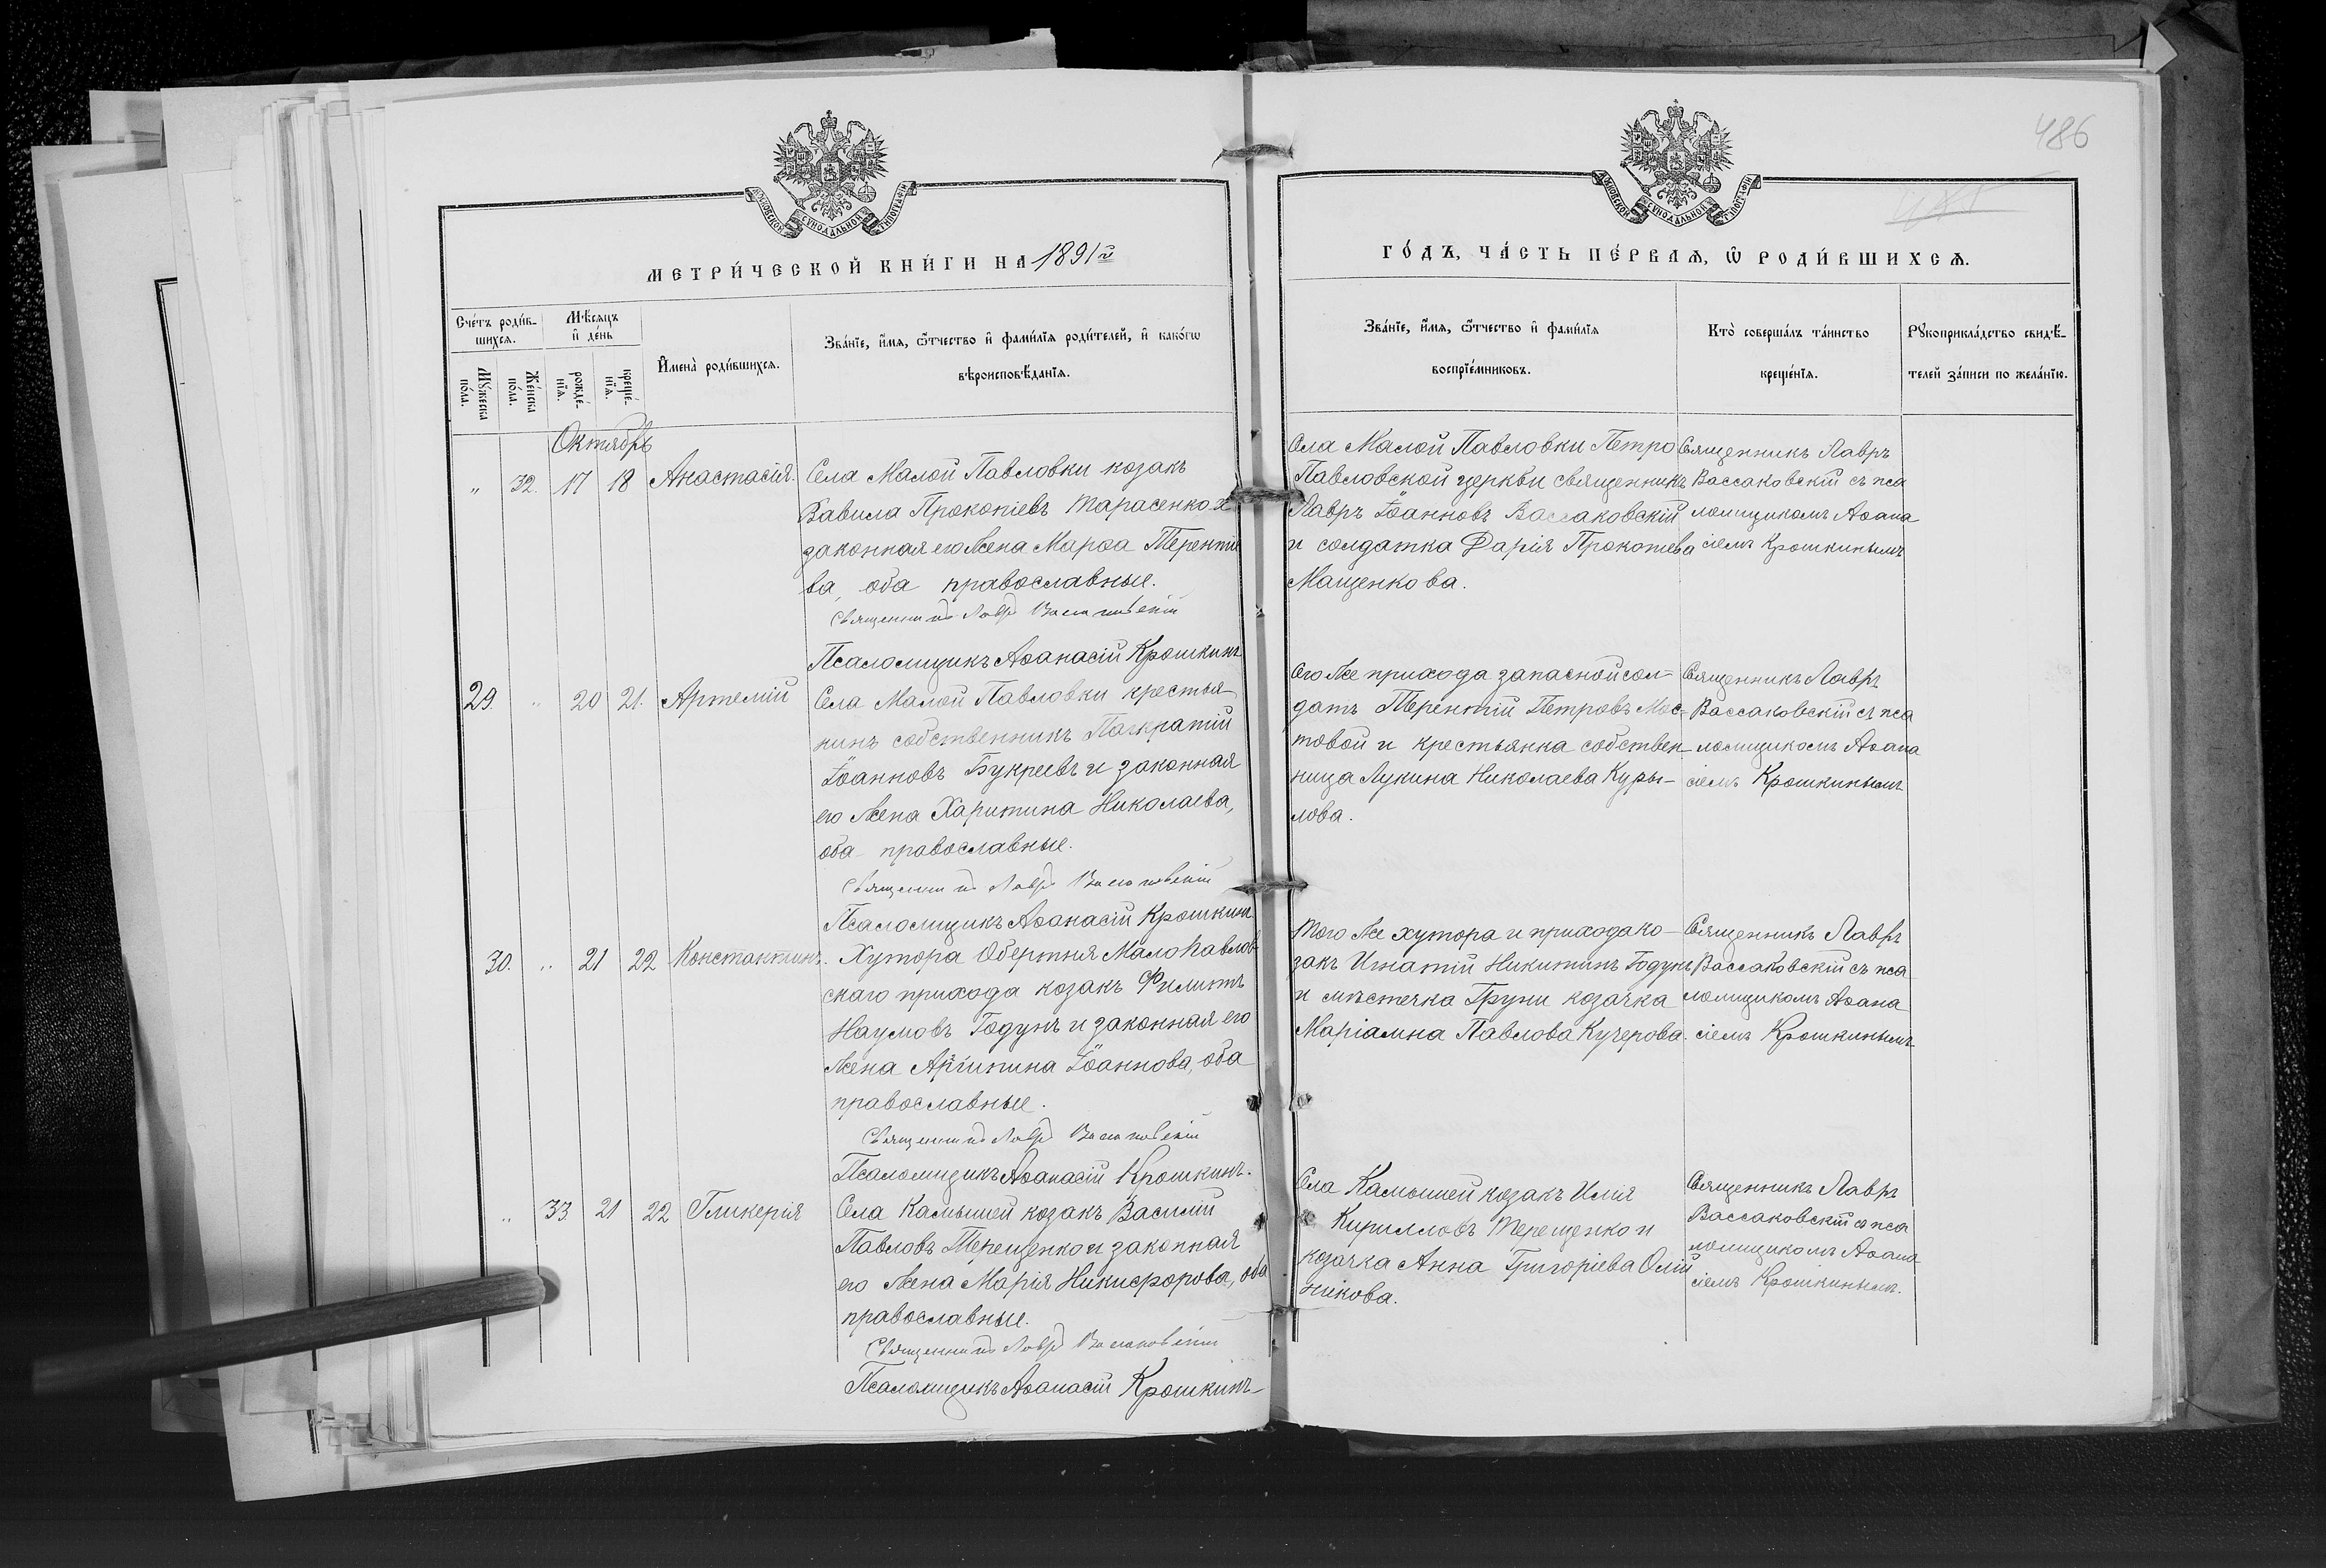 486
МОСКОВСКОЙ СѴНОДАЛЬНОЙ ТИПОГРАФІИ
МОСКОВСКОЙ СѴНОДАЛЬНОЙ ТИПОГРАФІИ
МЕТРИ́ЧЕСКОЙ КНИ́ГИ НА 1891й
ГО́ДЪ, ЧА́СТЬ ПЕ́РВАѦ, Ѽ РОДИ́ВШИХСѦ.
Сче́тъ роди́в-
шихсѧ.
Мѣ́сѧцъ
и҆ де́нь
Мꙋ́жеска
по́ла.
Же́нска
по́ла.
рожде́-
нїѧ.
креще́-
нїѧ.
И҆мена̀ роди́вшихсѧ.
Зва́нїе, и҆́мѧ, ѻ҆́тчество и҆ фами́лїѧ роди́телей, и҆ како́гѡ
вѣроисповѣ́данїѧ.
Зва́нїе, и҆́мѧ, ѻ҆́тчество и҆ фами́лїѧ
воспрїе́мниковъ.
Кто̀ соверша́лъ та́инство
креще́нїѧ.
Рꙋкоприкла́дство свидѣ́-
телей за́писи по жела́нїю.
Октябрь
„ 32. 17 18 Анастасія.
Села Малой Павловки козакъ
Вавила Прокопіевъ Тарасенко и
законная его жена Марѳа Терентіе
ва, оба православные.
Священникъ Лавръ Вассаковскій
Псаломщикъ Аѳанасій Крошкинъ
Села Малой Павловки Петро
Павловской церкви священникъ
Лавръ Іоанновъ Вассаковскій
и солдатка Дарія Прокопіева
Мащенкова.
Священникъ Лавръ
Вассаковскій съ пса
ломщикомъ Аѳана
сіемъ Крошкинымъ
29. „ 20 21. Артемій
Села Малой Павловки крестья-
нинъ собственникъ Панкратій
Іоанновъ Букреевъ и законная
его жена Харитина Николаева,
оба православные.
Священникъ Лавръ Вассаковскій
Псаломщикъ Аѳанасій Крошкинъ
Его же прихода запасной сол-
датъ Терентій Петровъ Мос-
товой и крестьянка собствен-
ница Лукина Николаева Куры-
лова.
Священникъ Лавръ
Вассаковскій съ пса
ломщикомъ Аѳана
сіемъ Крошкинымъ
30. „ 21 22 Константинъ.
Хутора Обертня Малопавлов-
скаго прихода козакъ Филиппъ
Наумовъ Годунъ и законная его
жена Іоаннова, оба
православные.
Священникъ Лавръ Вассаковскій
Псаломщикъ Аѳанасій Крошкинъ.
Того же хутора и прихода ко-
закъ Игнатій Никитинъ Годунъ
и мѣстечка Груни козачка
Маріамна Павлова Кучерова.
Священникъ Лавръ
Вассаковскій съ пса
ломщикомъ Аѳана
сіемъ Крошкинымъ
„ 33. 21 22 Гликерія
Села Камышей козакъ Василій
Павловъ Терещенко и законная
его жена Марія Никифорова, оба
православные.
Священникъ Лавръ Вассаковскій
Псаломщикъ Аѳанасій Крошкинъ
Села Камышей козакъ Илія
Кирилловъ Терещенко и
козачка Анна Григоріева Олій
никова.
Священникъ Лавръ
Вассаковскій съ пса
ломщикомъ Аѳана
сіемъ Крошкинымъ.